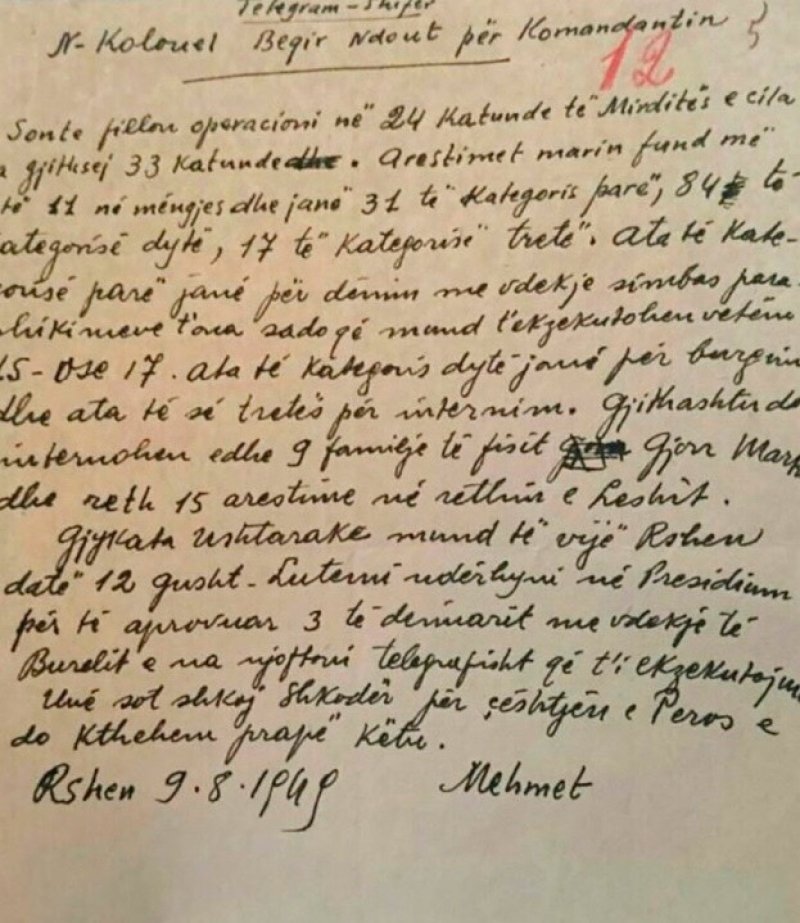 Telegram - Shifer
N- Kolonel Begir Ndout për Komandantin
12
Sonte fillon operacioni në 24 Katunde të Mirditës e cila
a gjithsej 33 Katunde dhe. Arestimet marin fund më
të 11 në mëngjes dhe janë 31 të Kategoris parë", 84 të
ategorisë dytë, 17 të Kategorisë tretë". Ata të Kate-
orisë parë janë për dënim me vdekje simbas para-
hikimeve t'ona sadoqë mund t'ekzekutohen vetëm
15- ose 17. Ata të Kategoris dytë janë për burgim
dhe ata të së tretës për internim. Gjithashtu do
internohen edhe 9 familje të fisit Gjon Mark
dhe reth 15 arestime në rethin e Leshit.
Gjykata Ushtarake mund të vijë Rshen
datë 12 gusht - Lutemi ndërhyni në Presidium
për të aprovuar 3 të denuarit me vdekje të
Burelit e na njoftoni telegrafisht që t'i ekzekutojm
Unë sot shkoj Shkodër për çështjen e Peros e
do Kthehem prapë këtu.
Rshen 9.8.1949 Mehmet